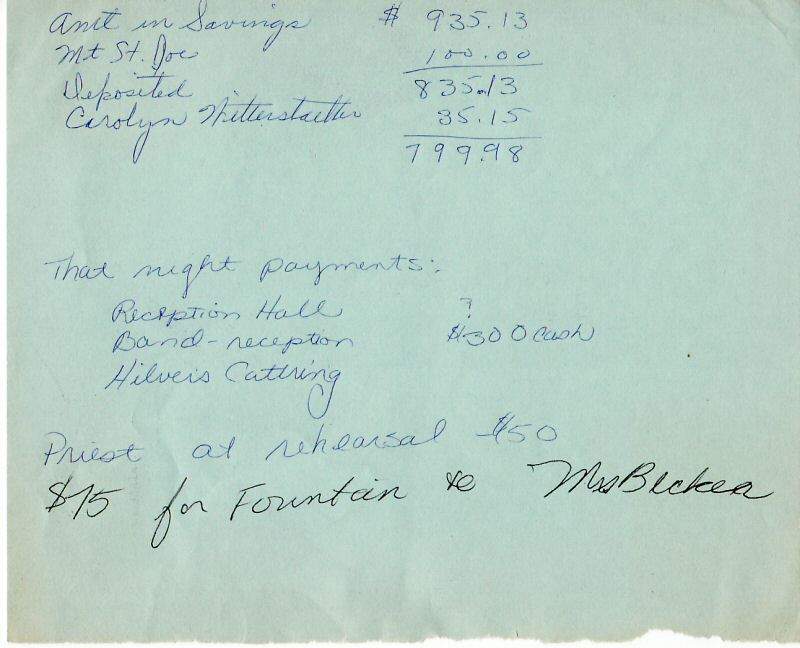 Amt in Savings $ 935.13
Mt St. Joe 100.00
Deposited 835.13
Carolyn Witterstaetter 35.15
799.98
That night payments:
Reception Hall ?
Band-reception $300 cash
Hilvers Cattring
Priest at rehearsal $50
$75 for Fountain to Mrs Becker